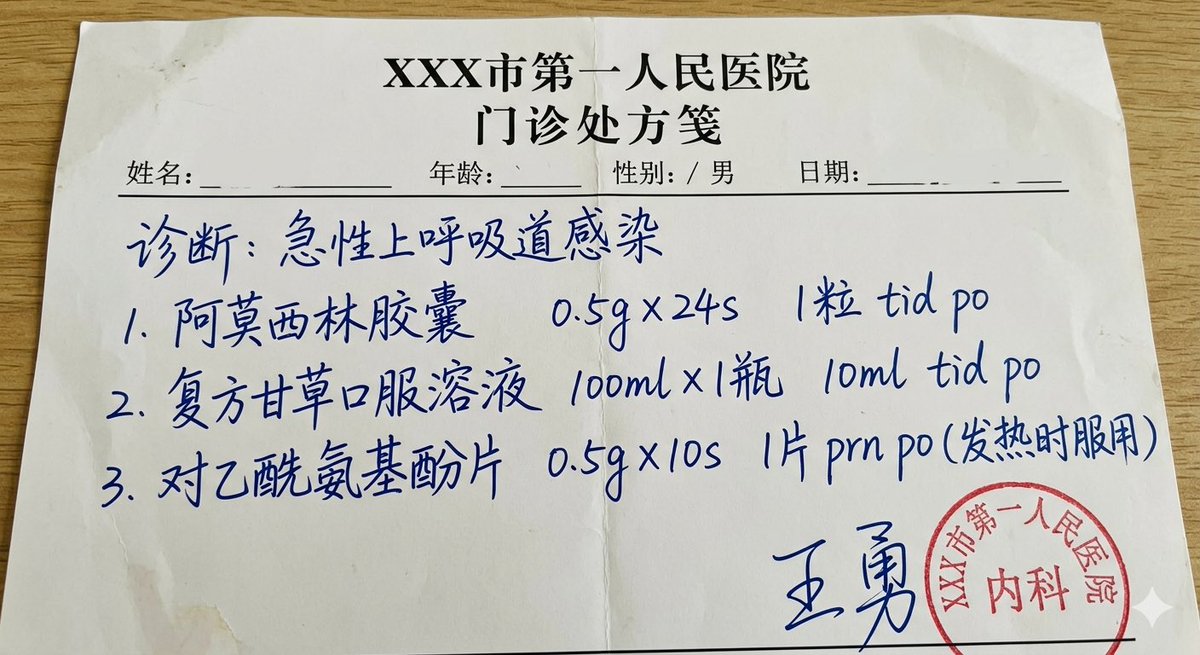 XXX市第一人民医院
门诊处方笺
姓名： 年龄： 性别：/ 男 日期：
诊断：急性上呼吸道感染
1. 阿莫西林胶囊 0.5g×24s 1粒 tid po
2. 复方甘草口服溶液 100ml×1瓶 10ml tid po
3. 对乙酰氨基酚片 0.5g×10s 1片 prn po (发热时服用)
王勇
XXX市第一人民医院
内科